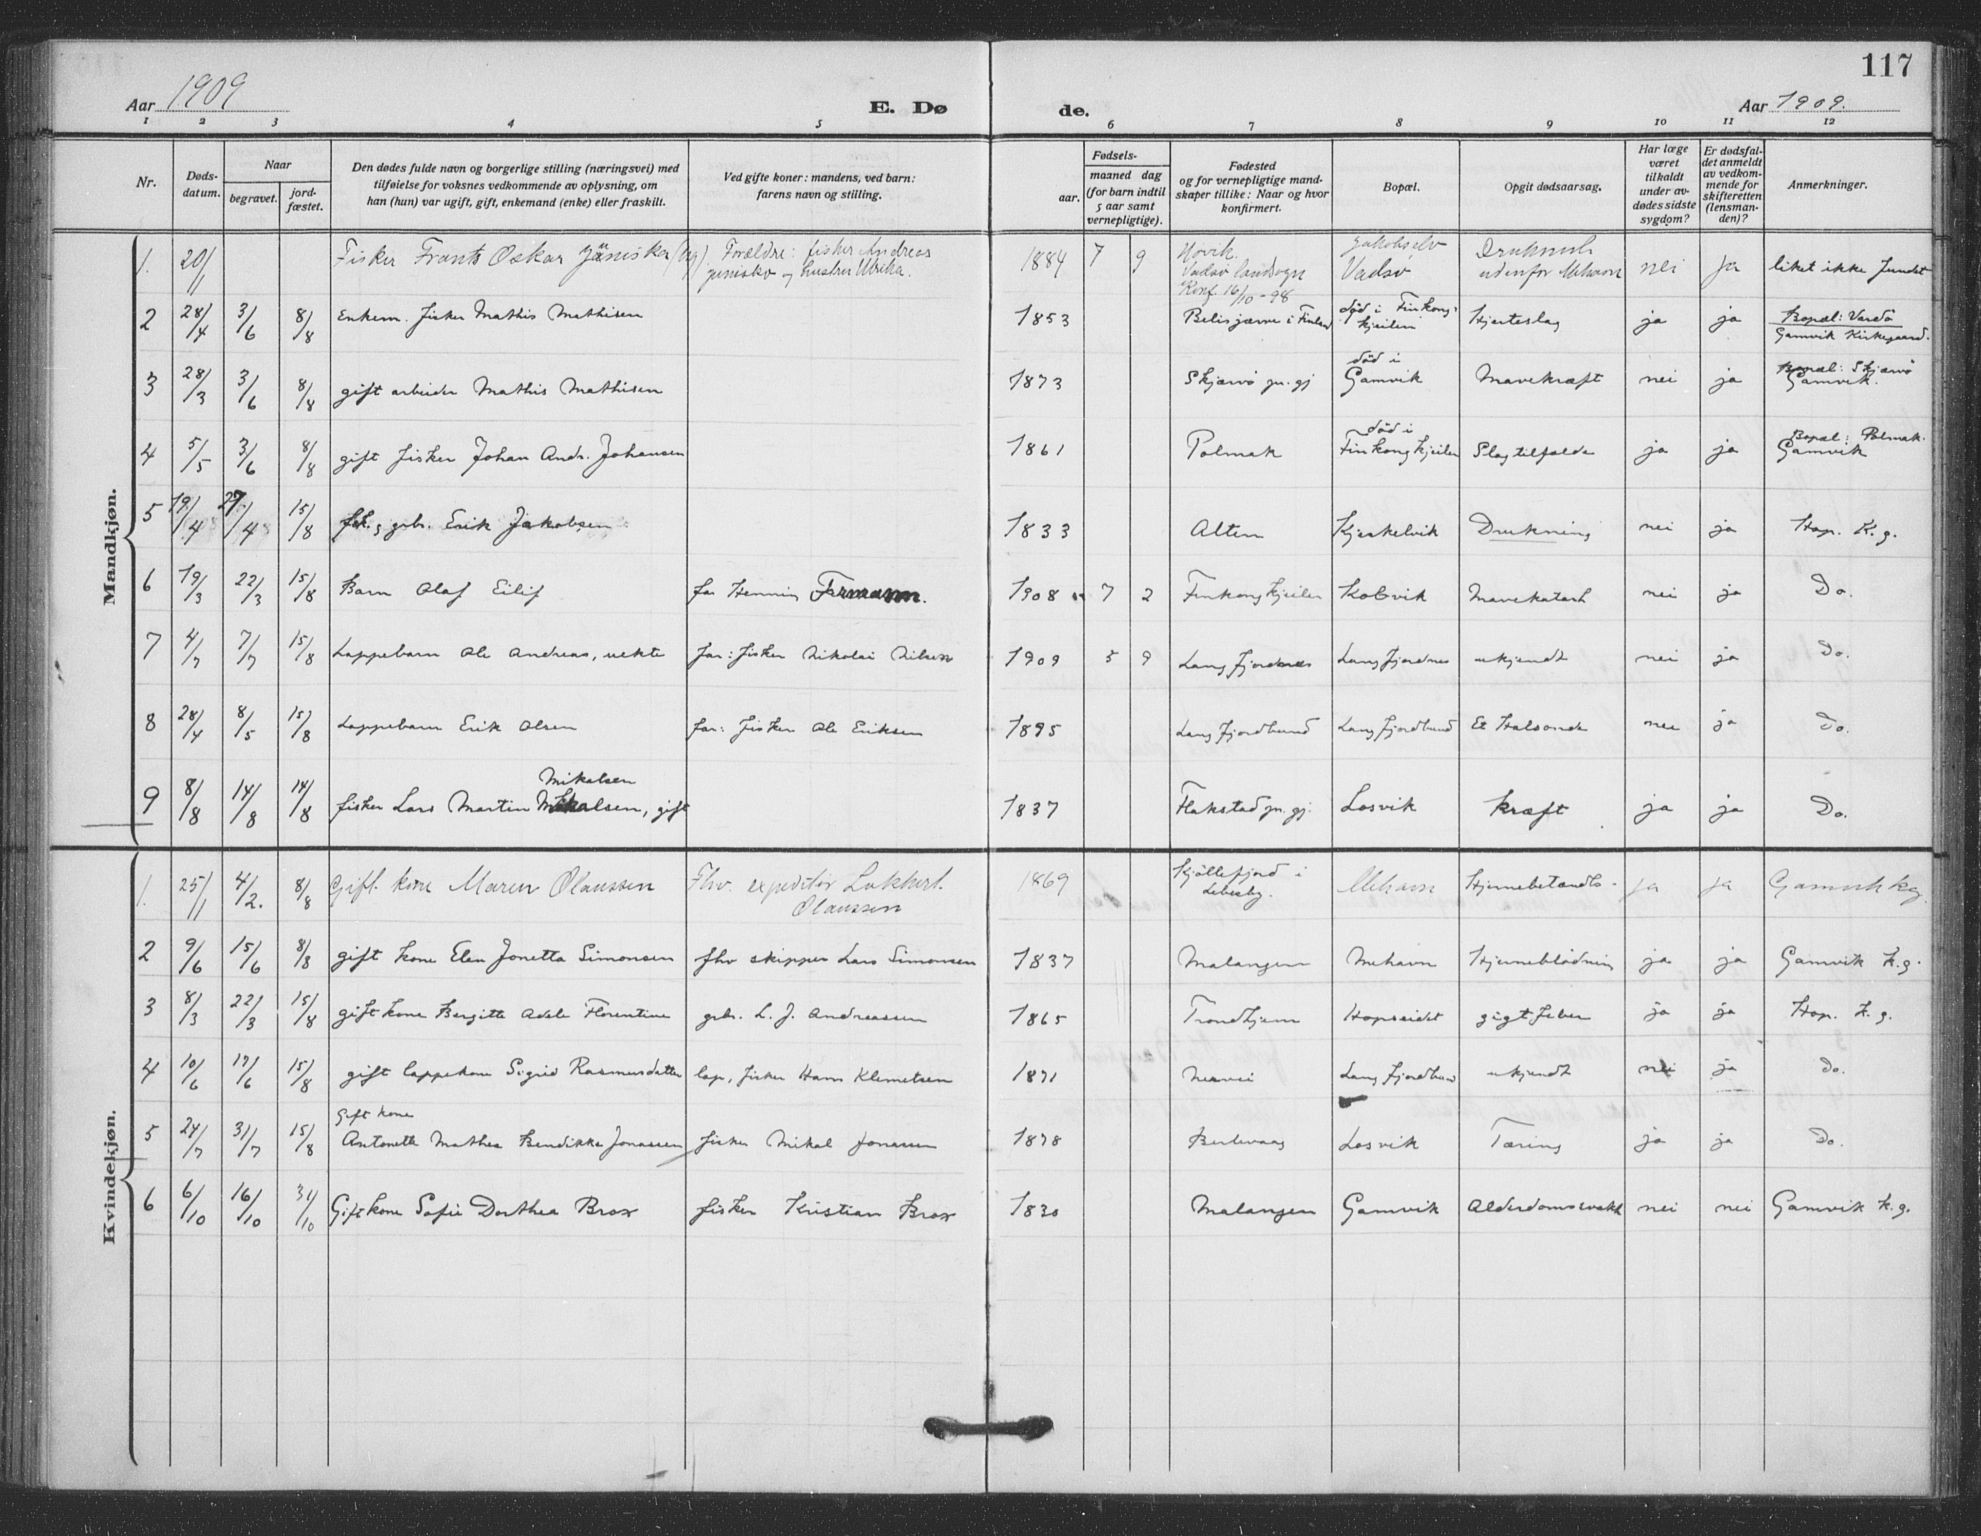 117
Aar 1909
E. Dø
de.
Aar 1909.
1 2 3 4 5 6 7 8 9 10 11 12
Nr.
Døds-
datum.
Naar
begravet.
jord-
fæstet.
Den dødes fulde navn og borgerlige stilling (næringsvei) med
tilføielse for voksnes vedkommende av oplysning, om
han (hun) var ugift, gift, enkemand (enke) eller fraskilt.
Ved gifte koner: mandens, ved barn:
farens navn og stilling.
Fødsels-
aar.
maaned dag
(for barn indtil
5 aar samt
vernepligtige).
Fødested
og for vernepligtige mand-
skaper tillike: Naar og hvor
konfirmert.
Bopæl.
Opgit dødsaarsag.
Har læge
været
tilkaldt
under av-
dødes sidste
sygdom?
Er dødsfal-
det anmeldt
av vedkom-
mende for
skifteretten
(lensman-
den)?
Anmerkninger.
Mandkjøn.
1. 20/1 Fisker Frants Oskar Jänisker (ug). Forældre: fisker Andreas 1884 7 9 Jakobselv
og hustru Ulrika. Vadsø landsogn Vadsø udenfor Mehavn nei ja liket ikke fundet
Konf. 16/10-98
2 28/4 3/6 8/8 Enkem. fisker Mathis Mathisen 1853 i Finland død i Finkong- Hjerteslag ja ja Bopæl: Vardø
kjeilen Gamvik Kirkegaard.
3 28/3 3/6 8/8 gift arbeider Mathis Mathisen 1873 Skjærvø pr. gj død i Mavekræft nei ja Bopæl: Skjærvø
Gamvik Gamvik.
4 5/5 3/6 8/8 gift fisker Johan Andr. Johansen 1861 Polmak død i Slagtilfælde ja ja Bopæl: Polmak.
Finkongkjeilen Gamvik
5 19/4 27/4 15/8 grbr. Erik Jakobsen 1833 Alten Kjerkelvik Drukning nei ja Hop. K.g.
6 19/3 22/3 15/8 Barn Olaf Eilif far Henning 1908 7 2 Finkongkjeilen Kobvik Mavekatarh nei ja Do.
7 4/7 7/7 15/8 Lappebarn Ole Andreas, uekte far: fisker Nikolai Nilsen 1909 5 9 Langfjordnes Langfjordnes ukjendt nei ja Do.
8 28/4 8/5 15/8 Lappebarn Erik Olsen far: fisker Ole Eriksen 1895 Langfjordbund Langfjordbund Et Halsonde nei ja Do.
Mikalsen
9 8/8 14/8 14/8 fisker Lars Martin Mikalsen, gift 1837 Flakstad pr. gj. Losvik kræft ja ja Do.
Kvindekjøn.
1. 25/1 4/2. 8/8 Gift. kone Maren Olaussen Fhv. expeditør Lukkert. 1869 Kjøllefjord i Mehavn Hjernebetændls- ja ja Gamvik kg
Olaussen Lebesby.
2 9/6 15/6 8/8 gift kone Elen Jonetta Simonsen fhv skipper Lars Simonsen 1837 Malangen Mehavn Hjerneblødning ja ja Gamvik k.g.
3 8/3 22/3 15/8 gift kone Bergitte Adele Florentine grbr. L. J. Andreassen 1865 Trondhjem Hopseidet gigtfeber ja ja Hop. k.g.
4 10/6 17/6 15/8 gift lappekone Sigrid Rasmusdatter lap, fisker Hans Klemetsen 1871 Nervei ukjendt nei ja Do.
Gift kone
5 24/7 31/7 15/8 Antonette Mathea Bendikke Jonassen fisker Mikal Jonassen 1878 Berlevaag Losvik Tæring ja ja Do.
6 6/10 16/10 31/10 Gift kone Sofie Dorthea Brox fisker Kristian Brox 1830 Malangen Gamvik Alderdomssvakh nei nei Gamvik k.g.